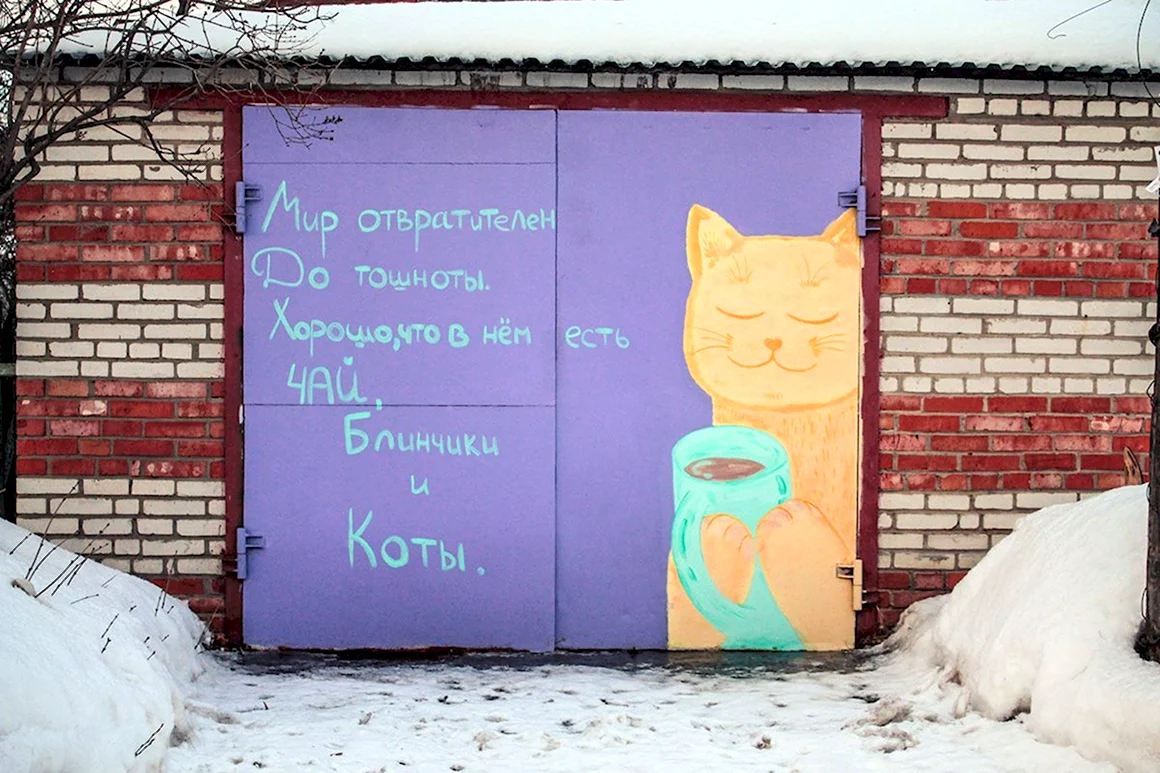 Мир отвратителен
До тошноты.
Хорошо, что в нём есть
ЧАЙ,
Блинчики
и
Коты.